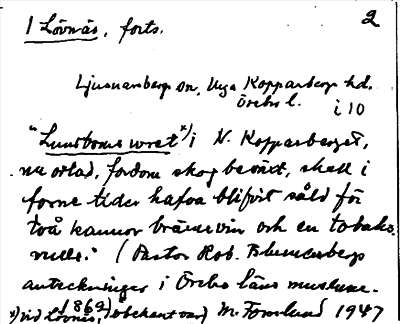 1 Lövnäs, forts. 2
Ljusnarsbergs sn, Nya Kopparbergs hd.
Örebro l. i 10
"Lustbouswret"x) i N. Kopparberget,
nu ortad, fordom skog bevuxt, skall i
forne tider hafva blifvit såld för
två kannor brännvin och en tobaks
rulle." (Pastor Rob. Blumenbergs
anteckningar i Örebro läns museum.
x) vid Lövnäs, 1869) obekant var) M. Fornlund 1947